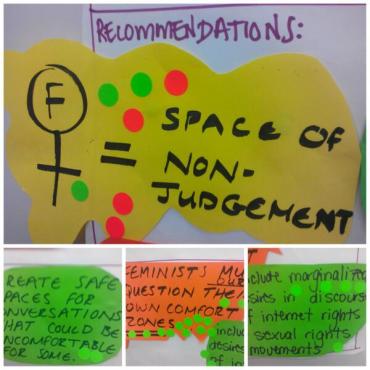 RECOMMENDATIONS:
F
= SPACE OF
NON-
JUDGEMENT
REATE SAFE
PACES FOR
NVERSATIONS
HAT COULD BE
NCOMFORTABLE
FOR SOME.
EMINISTS MU
OUR
QUESTION THEI
OWN COMFORT
ZONES
inclu
desires
of in
clude marginalized
sires in discours
f internet rights
sexual rights
movements